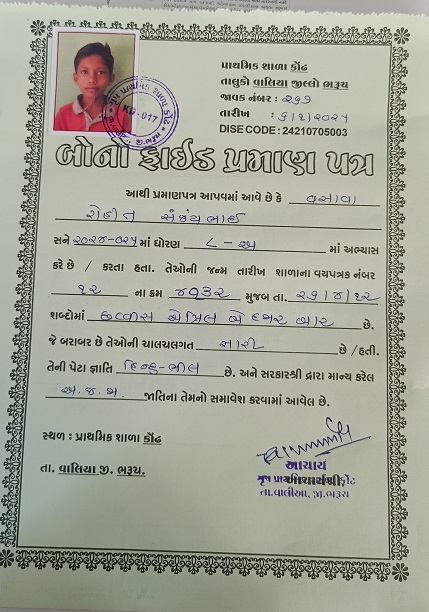 પ્રાથમિક શાળા કોંઢ
તાલુકો વાલિયા જીલ્લો ભરૂચ
જાવક નંબર : ૨૧૭
તારીખ : ૬/૧/૨૦૨૫
DISE CODE : 24210705003
KD-017
બોનાફાઈડ પ્રમાણ પત્ર
આથી પ્રમાણપત્ર આપવમાં આવે છે કે વસાવા
રોહીત સંજયભાઈ
સને ૨૦૨૪-૦૨૫ માં ધોરણ ૮ - અ માં અભ્યાસ
કરે છે / કરતા હતા. તેઓની જન્મ તારીખ શાળાના વયપત્રક નંબર
૧૨ ના ક્રમ ૪૦૩૨ મુજબ તા. ૨૬/૪/૧૨
શબ્દોમાં છવ્વીસ એપ્રિલ બે હજાર બાર છે.
જે બરાબર છે તેઓની ચાલચલગત સારી છે /હતી.
તેની પેટા જ્ઞાતિ હિન્દુ-ભીલ છે. અને સરકારશ્રી દ્રારા માન્ય કરેલ
અ.જ.જા. જાતિના તેમનો સમાવેશ કરવામાં આવેલ છે.
સ્થળ : પ્રાથમિક શાળા કોંઢ
તા. વાલિયા જી. ભરૂચ.
આચાર્ય
આચાર્યશ્રી
તા.વાલીઆ, જી.ભરૂચ